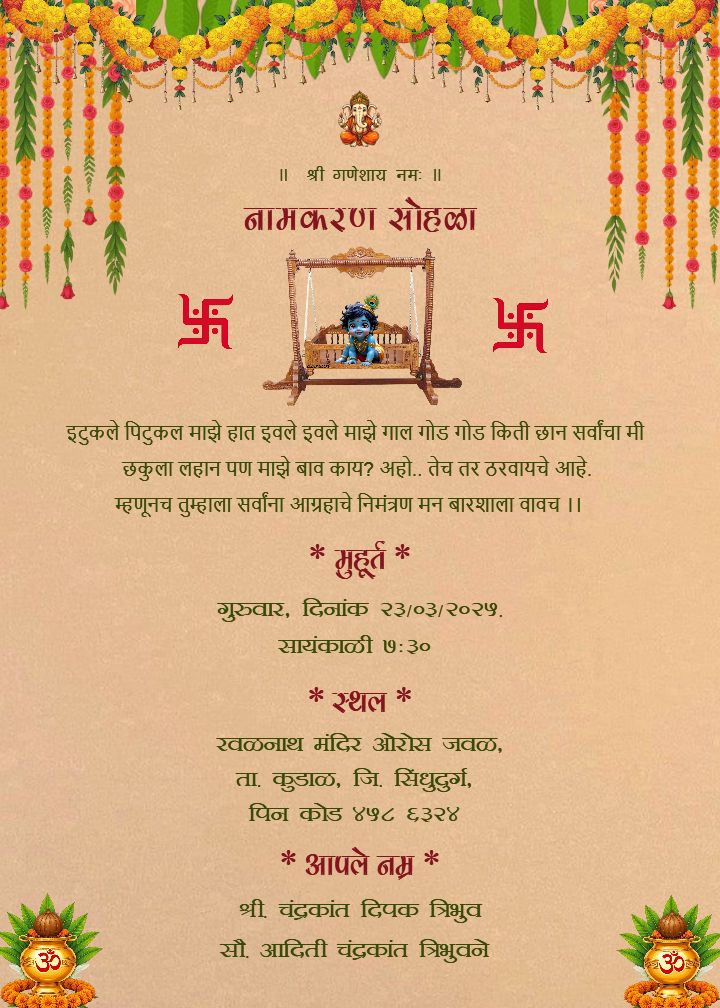 ॥ श्री गणेशाय नमः ॥
नामकरण सोहळा
इटुकले पिटुकल माझे हात इवले इवले माझे गाल गोड गोड किती छान सर्वांचा मी
छकुला लहान पण माझे बाव काय? अहो.. तेच तर ठरवायचे आहे.
म्हणूनच तुम्हाला सर्वांना आग्रहाचे निमंत्रण मन बारशाला वावच ।।
* मुहूर्त *
गुरुवार, दिनांक २३/०३/२०२५.
सायंकाळी ७:३०
* स्थल *
रवळनाथ मंदिर ओरोस जवळ,
ता. कुडाळ, जि. सिंधुदुर्ग,
पिन कोड ४५८ ६३२४
* आपले नम्र *
श्री. चंद्रकांत दिपक त्रिभुव
सौ. आदिती चंद्रकांत त्रिभुवने
ॐ
ॐ